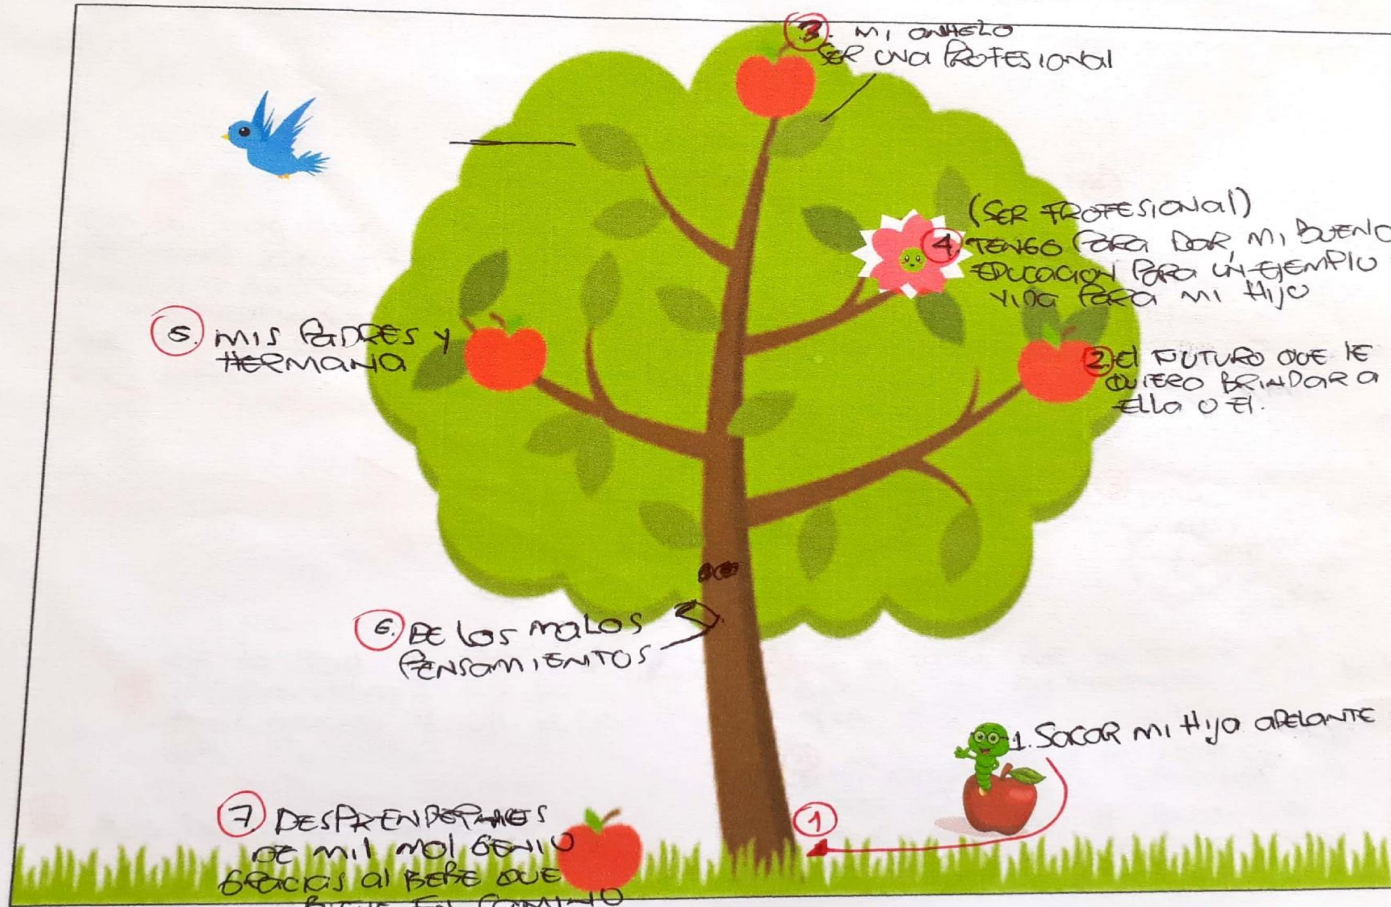 3. MI ANHELO
SER UNA PROFESIONAl
(SER PROFESIONAl)
4. TENGO PARA DAR, MI BUENO
EDUCACION PARA UN EJEMPlO
VIDA PARA MI HIJO
5. MIS PADRES Y
HERMANA
2. El FUTURO QUE lE
QUIERO BRINDAR A
Ella O El.
6. DE los malos
PENSAMIENTOS
1. SACAR MI HIJa ADELANTE
1
7. 
DE MI mal GENIO
GRACIAS al BEBE QUE
EN CAMINO